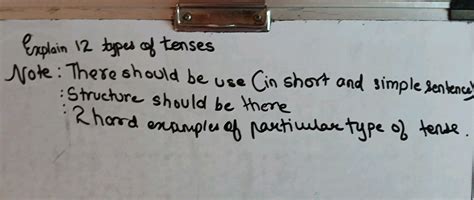 Explain 12 types of tenses
Note : There should be use (in short and simple sentence)
: Structure should be there
: 2 hard examples of particular type of tense.